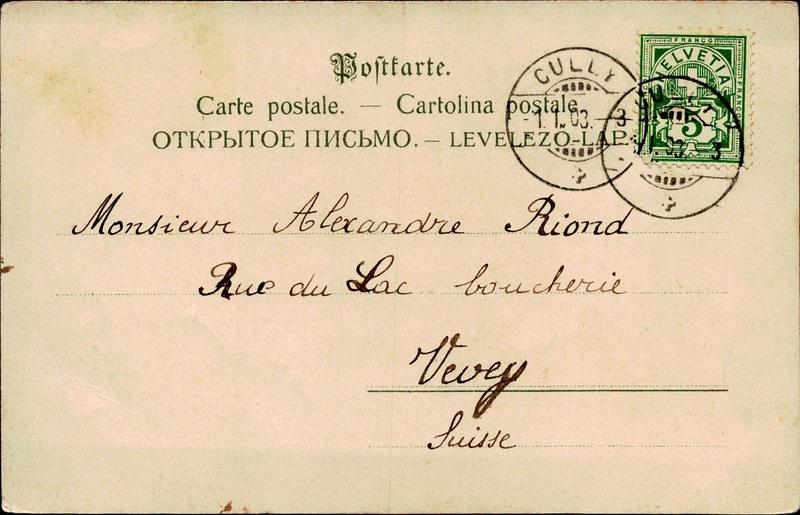 Postkarte.
Carte postale. — Cartolina postale
ОТКРЫТОЕ ПИСЬМО. — LEVELEZÖ-LAP.
FRANCO
HELVETIA
5
CULLY
-1.I.03.-3
Monsieur Alexandre Riond
Rue du Lac boucherie
Vevey
Suisse